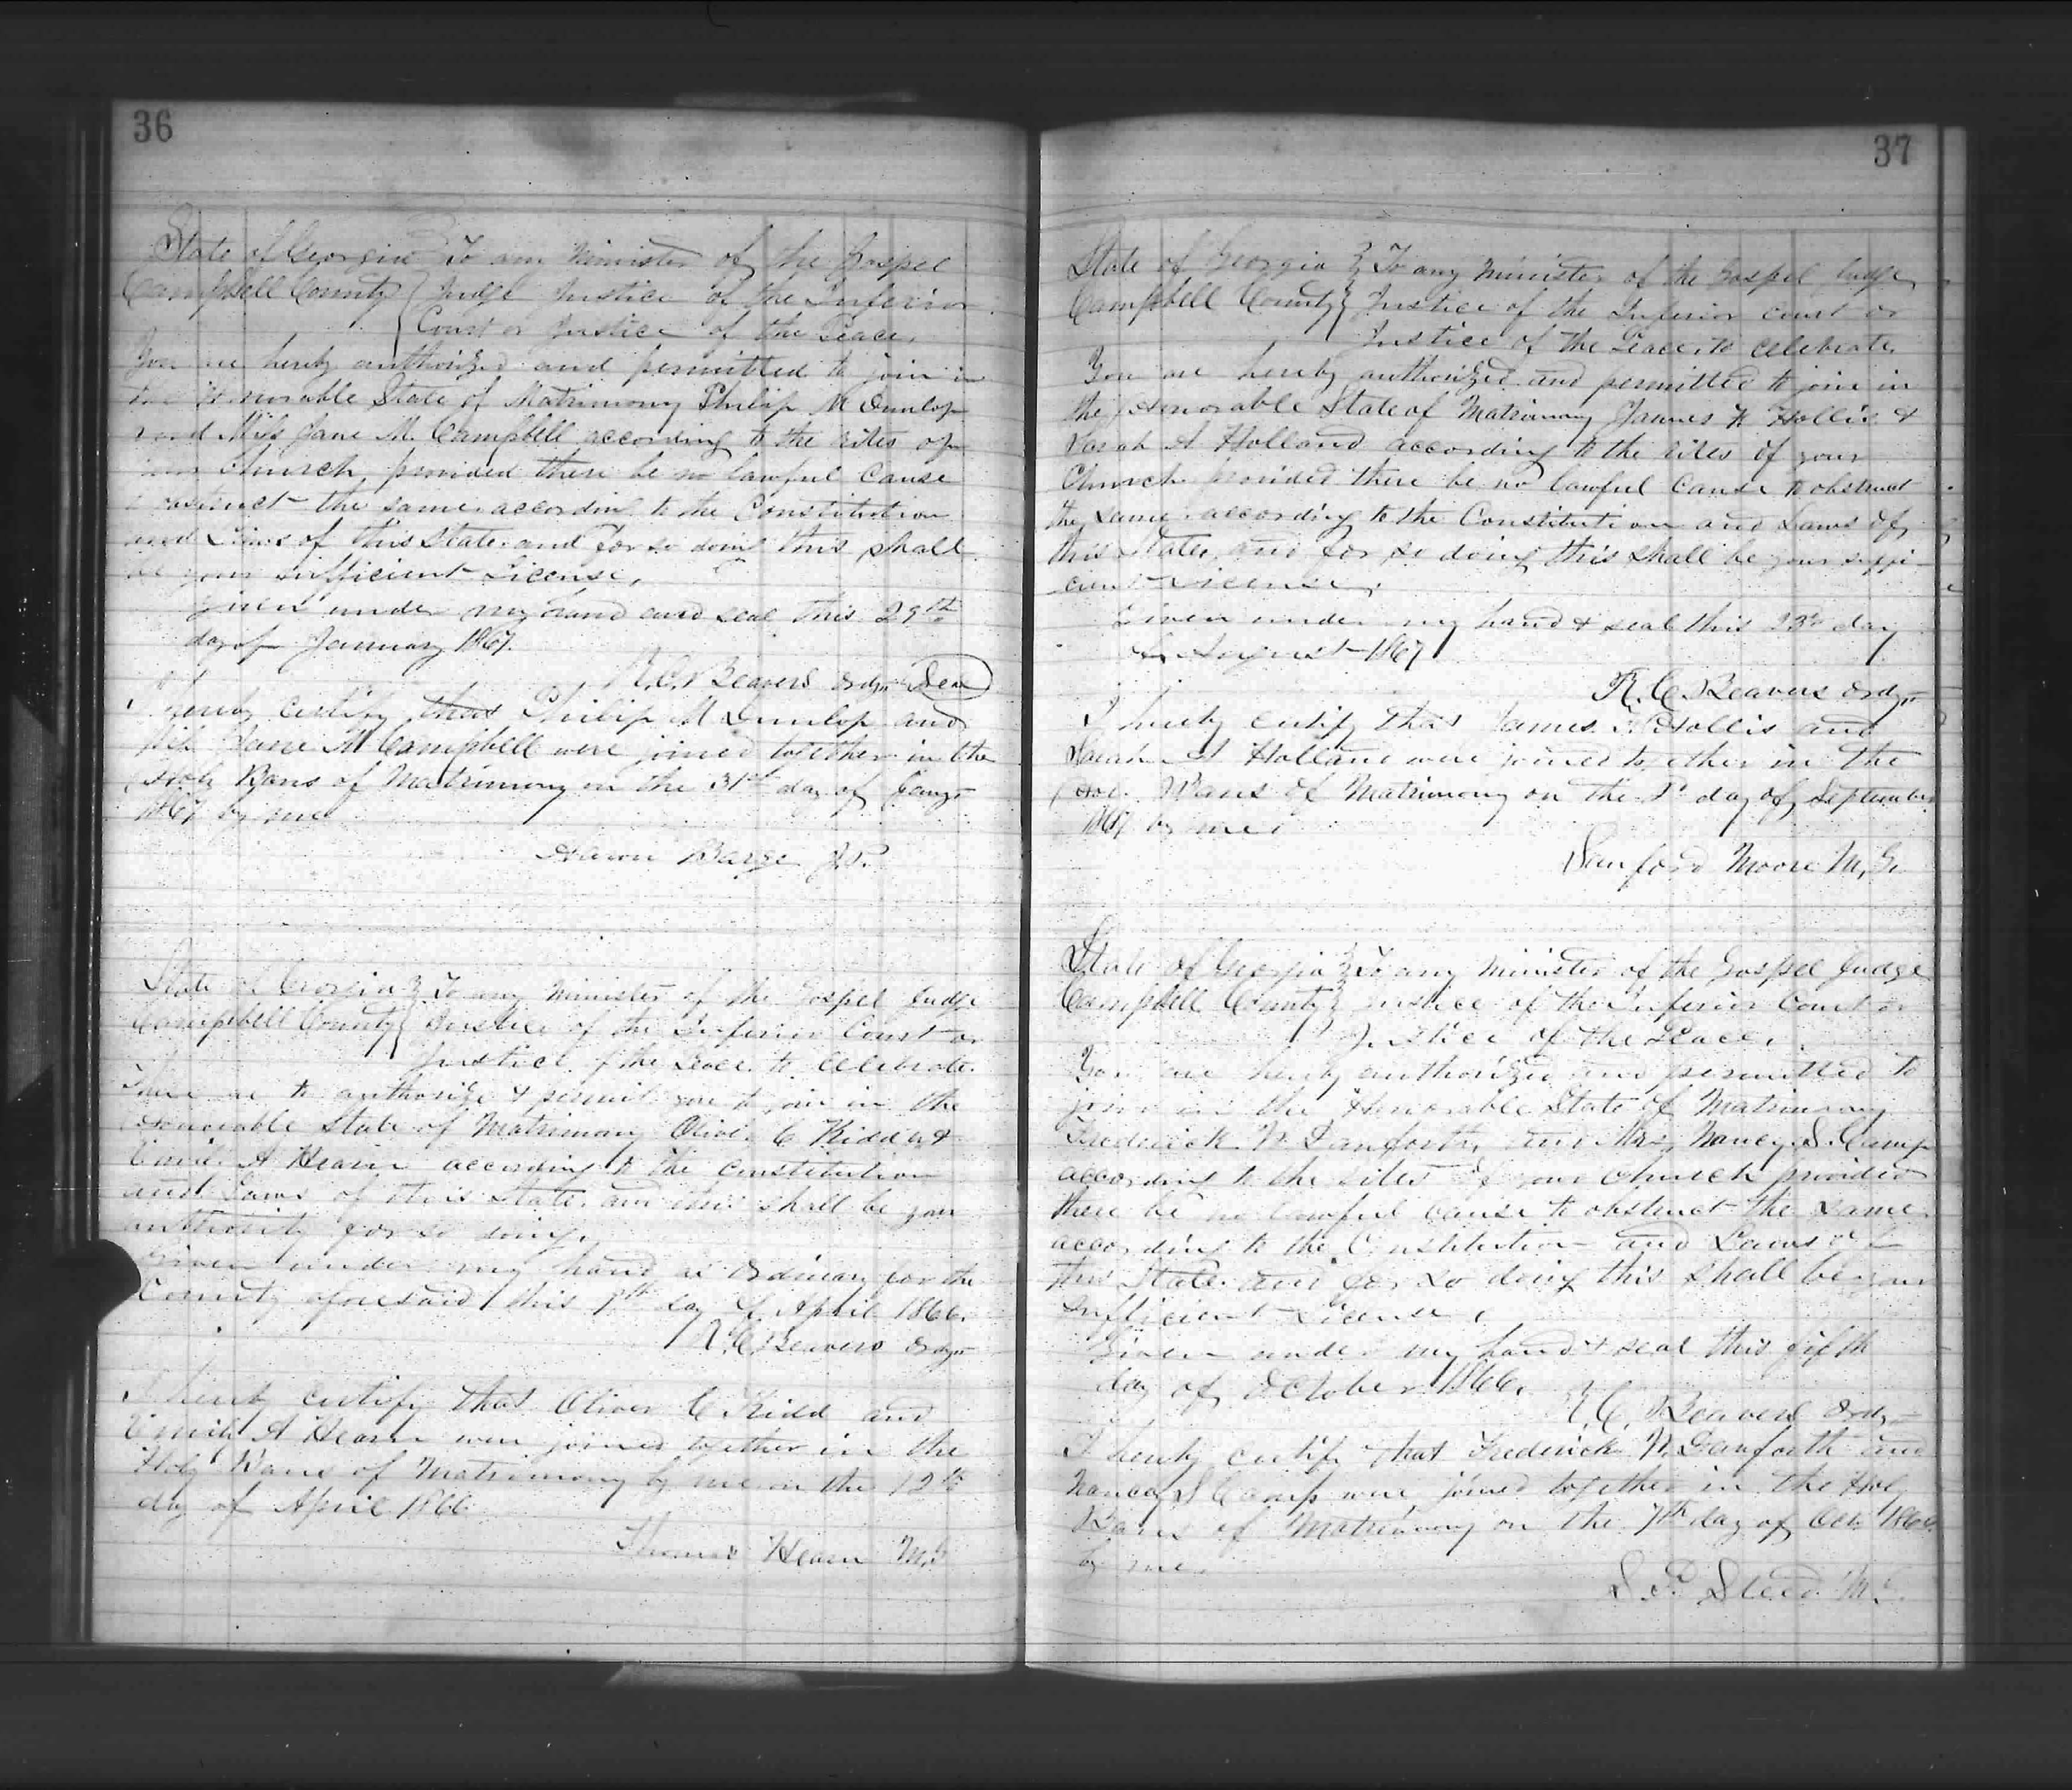 36
State of Georgia To any Minister of the Gospel
Campbell County Judge Justice of the Inferior
Court or Justice of the Peace,
You are hereby authorized and permitted to join in
the Honorable State of Matrimony Philip M Dunlop
and Miss Jane M. Campbell according to the rites of
your Church, provided there be no lawful Cause
to obstruct the same according to the Constitution
and Laws of this State and for so doing this shall
be your sufficient License,
Given under my hand and seal this 29th
day of January 1867.
R. C. Beavers Ordy Seal
I hereby certify that Philip M Dunlop and
Jane M Campbell were joined together in the
Holy Bans of Matrimony on the 31st day of Jany
1867 by me
Barge J.P.
State of Georgia To any Minister of the Gospel Judge
Campbell County Justice of the Inferior Court or
Justice of the Peace to Celebrate
These are to authorize & permit you to join in the
Honorable State of Matrimony Oliver C Kidd &
A Hearn according to the Constitution
and Laws of this State and this shall be your
authority for so doing,
Given under my hand as Ordinary for the
County aforesaid this day of April 1866.
R. C. Beavers Ordy
I hereby certify that Oliver C Kidd and
A Hearn were joined together in the
Holy Bans of Matrimony by me on the 12th
day of April 1866
Thomas Hearn M.G
37
State of Georgia To any Minister of the Gospel Judge
Campbell County Justice of the Inferior Court or
Justice of the Peace to Celebrate
You are hereby authorized and permitted to join in
the Honorable State of Matrimony James Hollis &
Sarah A Holland according to the rites of your
Church provided there be no lawful Cause to obstruct
the same according to the Constitution and Laws of
this State, and for so doing this shall be your suffi-
cient License,
Given under my hand & seal this 23rd day
of August 1867
R. C. Beavers Ordy
I hereby certify that James Hollis and
Sarah A Holland were joined together in the
Holy Bans of Matrimony on the day of September
1867 by me
Sanford Moore M, G.
State of Georgia To any Minister of the Gospel Judge
Campbell County Justice of the Inferior Court or
Justice of the Peace,
You are hereby authorized and permitted to
join in the Honorable State of Matrimony
Frederick Danforth, and Mrs Nancy S. Camp
according to the rites of your Church provided
there be no lawful cause to obstruct the same
according to the Constitution and Laws of
this State and for so doing this shall be your
sufficient License,
Given under my hand & seal this fifth
day of October 1866.
R. C. Beavers Ordy
I hereby certify that Frederick Danforth and
Nancy S Camp were joined together in the Holy
Bans of Matrimony on the 7th day of Oct 1866
by me.
Steed M.G.